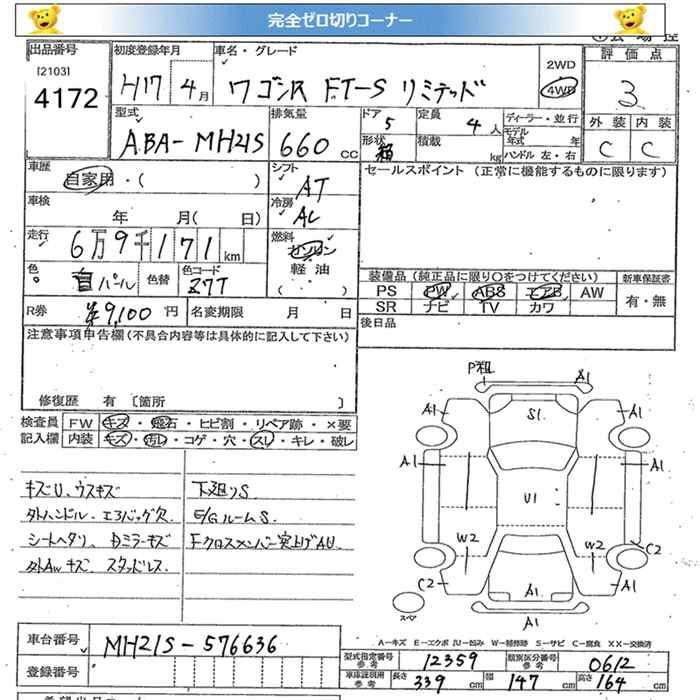 完全ゼロ切りコーナー
出品番号 初度登録年月 車名・グレード 評価点
[2103]
4172 H17 4月 ワゴンR FT-S リミテッド 2WD 4WD 3
型式 排気量 ドア 定員 ディーラー・並行 外装 内装
ABA-MH21S 660cc 5 4人 モデル年式 年 C C
形状 箱 積載 kg ハンドル 左・右
車歴 自家用・( ) シフト AT セールスポイント(正常に機能するものに限ります)
車検 年 月( 日) 冷房 AC
走行 6万9千171km 燃料 ガソリン
軽油
( )
色 白パール 色替 色コード Z7T 装備品(純正品に限り○をつけてください) 新車保証書
PS PW ABS エアB AW 有・無
SR ナビ TV カワ
R券 ¥9,100円 名変期限 月 日 後日品
注意事項申告欄(不具合内容等は具体的に記入して下さい)
修復歴 有 〔箇所 〕
検査員 FW キズ・飛石・ヒビ割・リペア跡・×要
記入欄 内装 キズ・汚レ・コゲ・穴・スレ・キレ・破レ
キズU、ウスキズ 下廻りS
外ハンドル・エアバッグ欠 E/GルームS
シートヘタリ、Dミラーキズ Fクロスメンバー突上ゲAU
外AWキズ、スタッドレス
P粗 A1
A1 S1 A1
A1 U1 A1
W2 W2
C2 C2
A1 A1
A1
スペア
A-キズ E-エクボ U-凹み W-補修跡 S-サビ C-腐食 XX-交換済
車台番号 MH21S-576636
登録番号
型式指定番号 参考 12359 類別区分番号 参考 0612
車庫証明用 参考 長さ 339cm 幅 147cm 高さ 164cm